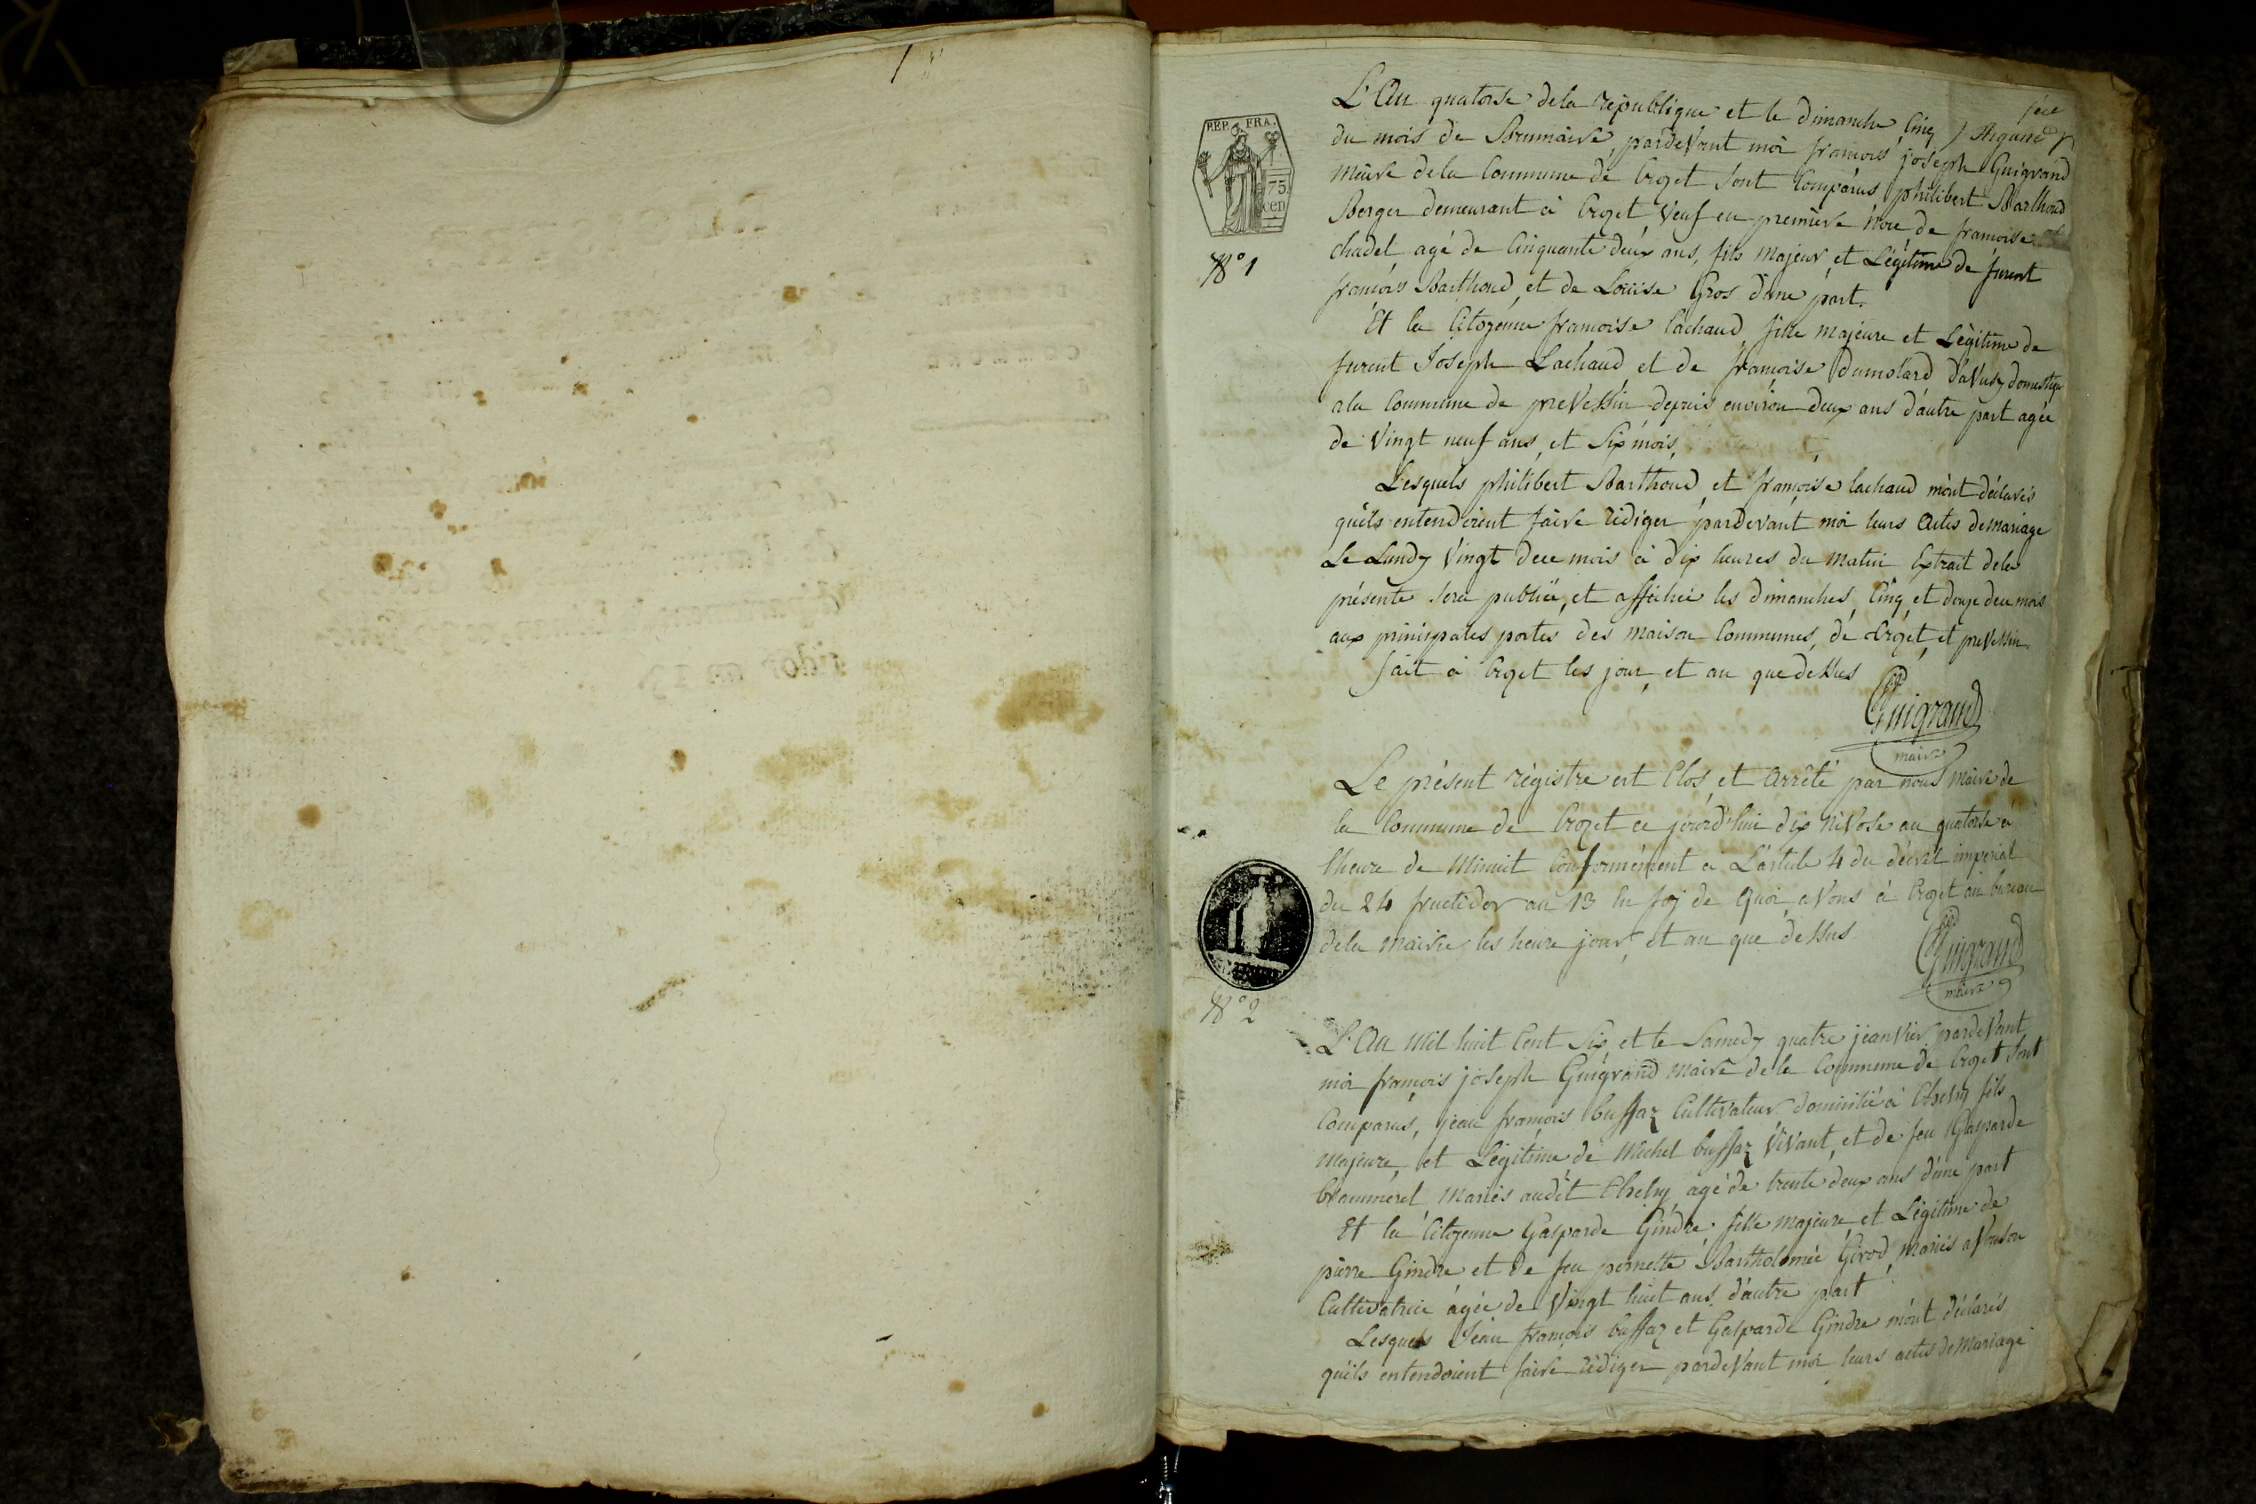 L'An quatorse dela République et le dimanche Cinq
du mois de Brumaire, pardevant moi françois joseph Guigrand
Maire dela Commune de Crozet sont Comparus philibert Barthoud
Berger demeurant à Crozet Veuf en première Noce de françoise
chadel agé de Cinquante deux ans, fils majeur et Légitime de furent
françois Barthoud, et de Louise Gros d'une part.
Et la Citoyenne françoise Lachaud fille majeure et Légitime de
furent Joseph Lachaud et de françoise Dumolard d'avusy domestique
a la Commune de preVessin depuis environ deux ans d'autre part agée
de Vingt neuf ans, et Six mois,
Lesquels philibert Barthoud, et françoise lachaud m'ont déclarés
qu'ils entendoient faire rédiger pardevant moi leurs Actes de mariage
Le Lundy Vingt du mois à dix heures du matin Extrait dela
présente sera publiée, et affichée les dimanches, Cinq, et douze du mois
aux principales portes des maison Communes, de Crozet, et preVessin
fait à Crozet les jour, et an que dessus
Guigrand
maire
REP. FRA.
75
cen
N° 1
Le présent régistre est Clos, et Arrêté par nous Maire de
la Commune de Crozet ce jourd'hui dix Nivose an quatorse à
l'heure de Minuit Conformément à L'article 4 du décrét impérial
du 24 fructidor an 13 En foj de Quoi, aVons à Crozet au bureau
dela mairie les heure jour, et an que dessus
Guigrand
maire
N° 2
L'An Mil huit Cent Six et le Samedy quatre jeanvier pardeVant
moi françois joseph Guigrand Maire dela Commune de Crozet sont
Comparus, jean françois buffaz Cultivateur domicilié à Chelry fils
majeure, et Légitime de Michel buffaz ViVant, et de feu Gasparde
mariés audit Chelry agé de trente deux ans d'une part
Et la Citoyenne Gasparde Gindre fille majeure et Légitime de
pierre Gindre et de feu pernette Bartholomée Girod, mariés
Cultivatrice agée de Vingt huit ans d'autre part
Lesquels Jean françois buffaz et Gasparde Gindre m'ont déclarés
qu'ils entendoient faire rédiger pardeVant moi leurs actes de Mariage